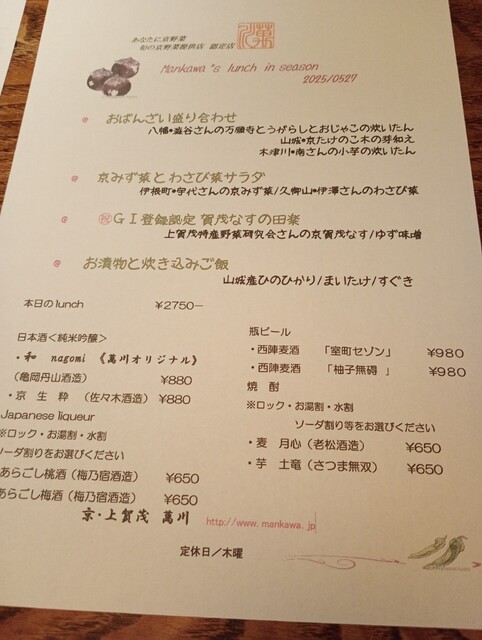 あなたに京野菜
旬の京野菜提供店 認定店
萬川
Mankawa's lunch in season
2025/0527
おばんざい盛り合わせ
八幡・澁谷さんの万願寺とうがらしとおじゃこの炊いたん
山城・京たけのこ木の芽和え
木津川・南さんの小芋の炊いたん
京みず菜とわさび菜サラダ
伊根町・宇代さんの京みず菜/久御山・伊澤さんのわさび菜
㊗GI登録認定 賀茂なすの田楽
上賀茂特産野菜研究会さんの京賀茂なす/ゆず味噌
お漬物と炊き込みご飯
山城産ひのひかり/まいたけ/すぐき
本日のlunch ¥2750―
日本酒<純米吟醸>
・和 nagomi 《萬川オリジナル》
(亀岡丹山酒造) ¥880
・京 生 粋 (佐々木酒造) ¥880
Japanese liqueur
※ロック・お湯割・水割
ソーダ割りをお選びください
あらごし桃酒(梅乃宿酒造) ¥650
あらごし梅酒(梅乃宿酒造) ¥650
瓶ビール
・西陣麦酒 「室町セゾン」 ¥980
・西陣麦酒 「柚子無碍 」 ¥980
焼 酎
※ロック・お湯割・水割
ソーダ割り等をお選びください
・麦 月心(老松酒造) ¥650
・芋 土竜(さつま無双) ¥650
京・上賀茂 萬川 http://www.mankawa.jp
定休日/木曜